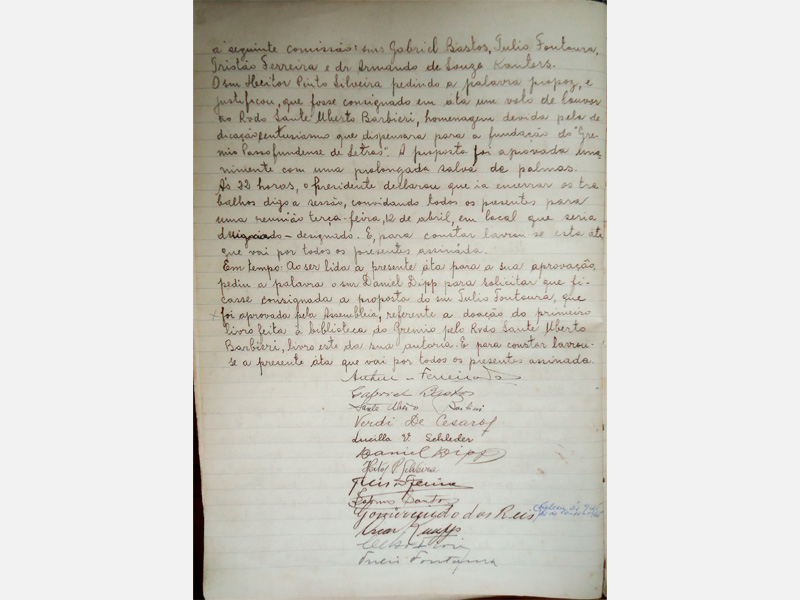 a seguinte comissão: snrs Gabriel Bastos, Tulio Fontoura,
Tristão Ferreira e dr Armando de Souza Kanters.
O snr Heitor Pinto Silveira pedindo a palavra propoz, e
justificou, que fosse consignado em ata um voto de louvor
ao Rvdo Sante Uberto Barbieri, homenagem devida pela de
dicação, entusiasmo que dispensara para a fundação do "Gre-
mio Passofundense de Letras". A proposta foi aprovada una
nimente com uma prolongada salva de palmas.
Às 22 horas, o Presidente declarou que ia encerrar os tra
balhos digo a sessão, convidando todos os presentes para
uma reunião terça-feira, 12 de abril, em local que seria
designado. E, para constar lavrou se esta áta
que vai por todos os presentes assinada.
Em tempo: Ao ser lida a presente áta para a sua aprovação,
pediu a palavra o snr Daniel Dipp para solicitar que fi-
casse consignada a proposta do snr Tulio Fontoura, que
foi aprovada pela Assembleia, referente a doação do primeiro
livro feita à biblioteca do Gremio pelo Rvdo Sante Uberto
Barbieri, livro este da sua autoria. E para constar lavrou-
se a presente áta que vai por todos os presentes assinada.
Arthur Ferreira
Gabriel Bastos
Sante Uberto Barbieri
Verdi De Cesaro
Lucilla V. Schleder
Daniel Dipp
Heitor P. Silveira
dos Reis
Tulio Fontoura